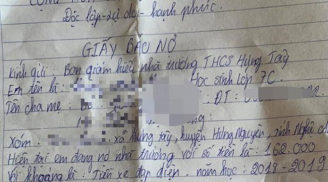 Độc lập - tự do - hạnh phúc.
GIẤY BÁO NỢ
Kính gửi: Ban giám hiệu nhà trường THCS Hưng Tây
Em tên là: Học sinh lớp 7C.
Tên cha mẹ: ĐT:
Xóm xã Hưng tây, huyện Hưng Nguyên, tỉnh Nghệ
Hiện tại em đang nợ nhà trường với số tiền là: 162.000
Vì khoảng là: Tiền xe đạp điện. năm học: 2018 - 2019